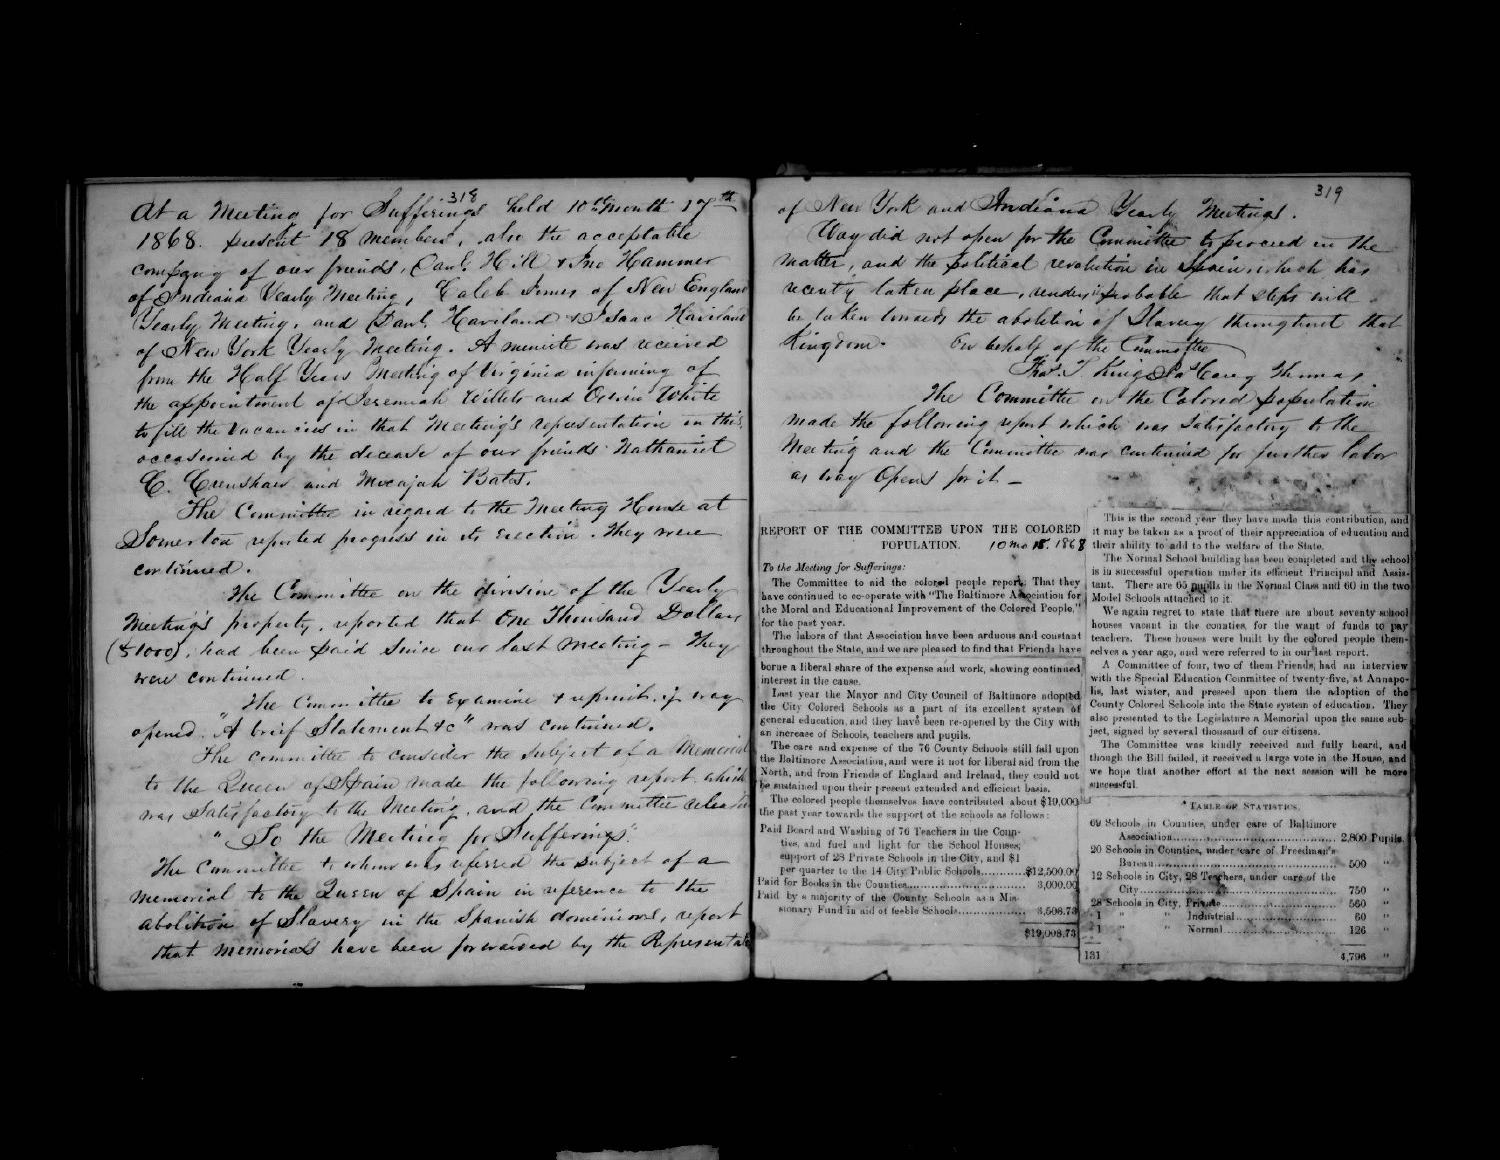 318
At a Meeting for Sufferings held 10th month 17th
1868. present 18 members, also the acceptable
company of our friends, Danl. Hill & Jno Hammer
of Indiana Yearly Meeting, Caleb Jones of New England
Yearly Meeting, and Danl. Haviland & Isaac Haviland
of New York Yearly Meeting. A minute was received
from the Half Years Meeting of Virginia informing of
the appointment of Jeremiah Willets and Orlin White
to fill the vacancies in that Meeting's representation in this,
occasioned by the decease of our friends Nathaniel
C. Crenshaw and Micajah Bates.
The Committee in regard to the Meeting House at
Somerton reported progress in its erection. They were
continued.
The Committee on the division of the Yearly
Meeting's property, reported that One Thousand Dollars
($1000), had been paid since our last meeting - They
were continued.
The Committee to examine & reprint, if way
opened "A brief Statement &c" was continued.
The committee to consider the subject of a Memorial
to the Queen of Spain made the following report which
was satisfactory to the Meeting, and the Committee released
"To the Meeting for Sufferings".
The Committee to whom was referred the subject of a
memorial to the Queen of Spain in reference to the
abolition of Slavery in the Spanish dominions, report
that memorials have been forwarded by the Representa
319
of New York and Indiana Yearly Meetings.
Way did not open for the Committee to proceed in the
matter, and the political revolution in Spain which has
recently taken place, renders it probable that steps will
be taken towards the abolition of Slavery throughout that
Kingdom. On behalf of the Committee
Fras. T. King Jas Carey Thomas
The Committee on the Colored population
made the following report which was satisfactory to the
Meeting and the Committee was continued for further labor
as way opens for it -
REPORT OF THE COMMITTEE UPON THE COLORED
POPULATION. 10 mo 18. 1868
To the Meeting for Sufferings:
The Committee to aid the colored people report: That they
have continued to co-operate with "The Baltimore Association for
the Moral and Educational Improvement of the Colored People,"
for the past year.
The labors of that Association have been arduous and constant
throughout the State, and we are pleased to find that Friends have
borne a liberal share of the expense and work, showing continued
interest in the cause.
Last year the Mayor and City Council of Baltimore adopted
the City Colored Schools as a part of its excellent system of
general education, and they have been re-opened by the City with
an increase of Schools, teachers and pupils.
The care and expense of the 76 County Schools still fall upon
the Baltimore Association, and were it not for liberal aid from the
North, and from Friends of England and Ireland, they could not
be sustained upon their present extended and efficient basis.
The colored people themselves have contributed about $19,000
the past year towards the support of the schools as follows:
Paid Board and Washing of 76 Teachers in the Coun-
ties, and fuel and light for the School Houses;
support of 28 Private Schools in the City, and $1
per quarter to the 14 City Public Schools..........$12,500.00
Paid for Books in the Counties.......................... 3,000.00
Paid by a majority of the County Schools as a Mis-
sionary Fund in aid of feeble Schools............... 3,508.73
$19,008.73
This is the second year they have made this contribution, and
it may be taken as a proof of their appreciation of education and
their ability to add to the welfare of the State.
The Normal School building has been completed and the school
is in successful operation under its efficient Principal and Assis-
tant. There are 65 pupils in the Normal Class and 60 in the two
Model Schools attached to it.
We again regret to state that there are about seventy school
houses vacant in the counties, for the want of funds to pay
teachers. These houses were built by the colored people them-
selves a year ago, and were referred to in our last report.
A Committee of four, two of them Friends, had an interview
with the Special Education Committee of twenty-five, at Annapo-
lis, last winter, and pressed upon them the adoption of the
County Colored Schools into the State system of education. They
also presented to the Legislature a Memorial upon the same sub-
ject, signed by several thousand of our citizens.
The Committee was kindly received and fully heard, and
though the Bill failed, it received a large vote in the House, and
we hope that another effort at the next session will be more
successful.
TABLE OF STATISTICS.
69 Schools in Counties, under care of Baltimore
Association.................................... 2,800 Pupils.
20 Schools in Counties, under care of Freedman's
Bureau........................................ 500 "
12 Schools in City, 28 Teachers, under care of the
City............................................ 750 "
28 Schools in City, Private......................... 560 "
1 " " Industrial..................... 60 "
1 " " Normal........................ 126 "
131 4,796 "